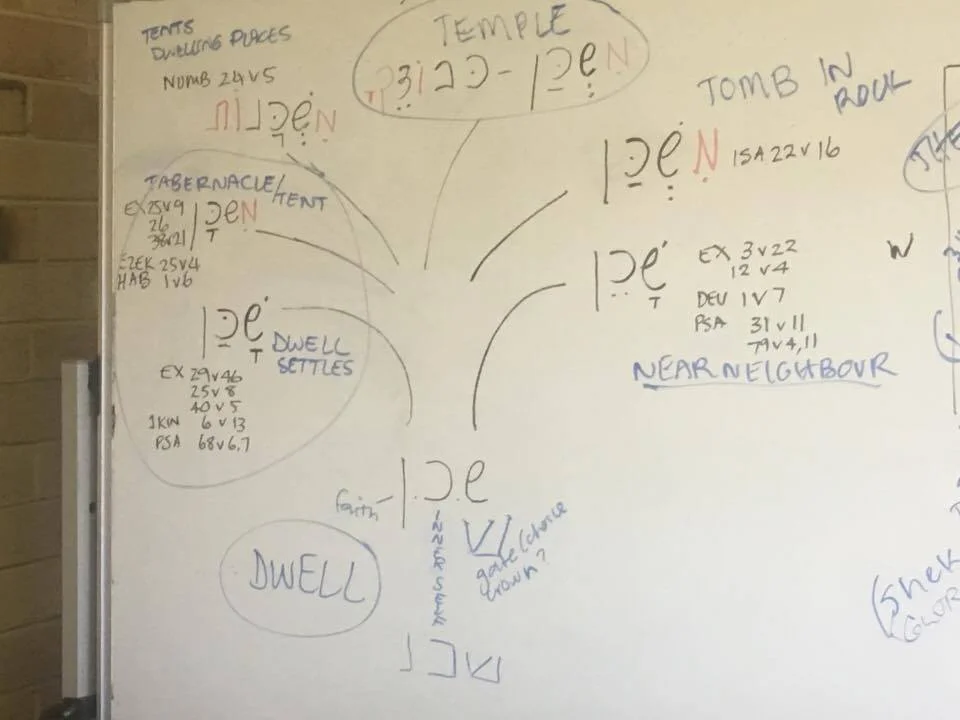 TENTS
DWELLING PLACES
NUMB 24 v 5
מִשְׁכְּנוֹת
TEMPLE
TOMB IN
ROCK
מִשְׁכַן ISA 22 v 16
TABERNACLE/
TENT
מִשכָן
EX 25 v 9
26
38 v 21
EZEK 25 v 4
HAB 1 v 6
שָׁכַן
DWELL
SETTLES
EX 29 v 46
25 v 8
40 v 5
1 KIN 6 v 13
PSA 68 v 6,7
שָׁכֵן
EX 3 v 22
12 v 4
DEU 1 v 7
PSA 31 v 11
79 v 4,11
NEAR NEIGHBOUR
שכן
faith
INNER SELF
gate/choice
crown?
DWELL
שכנ